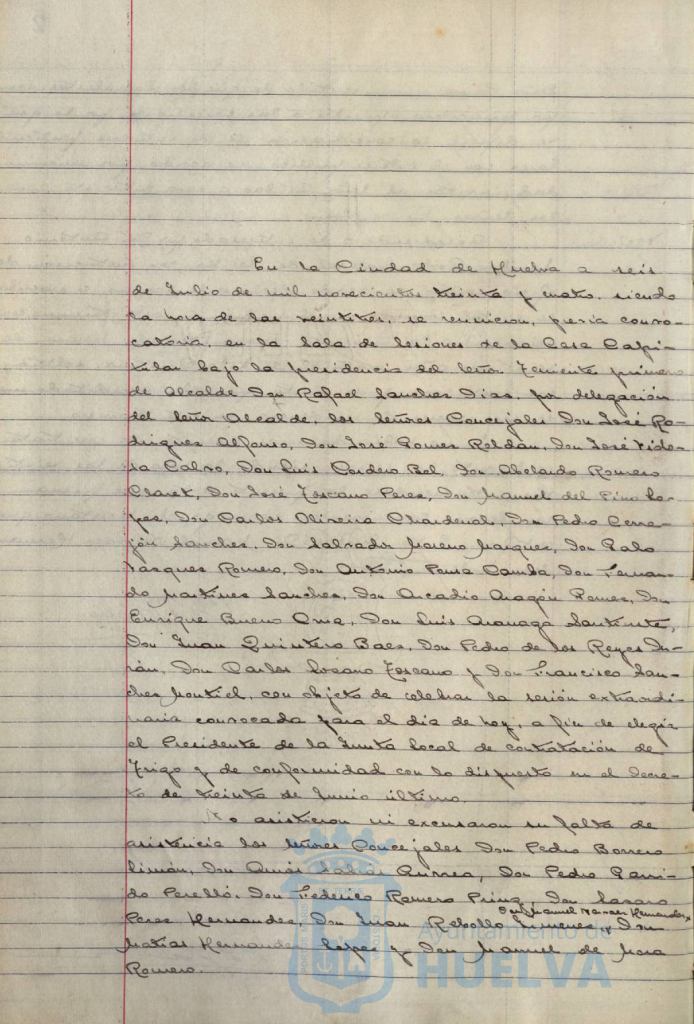 En la Ciudad de Huelva a seis
de Julio de mil novecientos treinta y cuatro, siendo
la hora de las veintitres, se reunieron, previa convo-
catoria, en la Sala de Sesiones de la Casa Capi-
tular bajo la presidencia del Señor Teniente primero
de Alcalde Don Rafael Sanchez Diaz, por delegación
del Señor Alcalde, los Señores Concejales Don José Ro-
driguez Alfonso, Don José Gomez Roldán, Don José Vide-
la Calvo, Don Luis Cordero Bel, Don Abelardo Romero
Claret, Don José Toscano Perez, Don Manuel del Pino Lo-
pez, Don Carlos Oliveira Chardenal, Don Pedro Cerre-
jón Sanchez, Don Salvador Moreno Marquez, Don
Vazquez Romero, Don Antonio Ponsa Camba, Don Fernan-
do Martinez Sanchez, Don Arcadio Aragón Gomez, Don
Enrique Bueno, Don Luis
Don Juan Quintero Baez, Don Pedro de los Reyes Du-
rán, Don Carlos Lozano Toscano y Don Francisco San-
chez Montiel, con objeto de celebrar la sesión extraordi-
naria convocada para el dia de hoy, a fin de elegir
el Presidente de la Junta local de contratación de
Trigo y de conformidad con lo dispuesto en el Decre-
to de treinta de Junio último.
No asistieron ni excusaron su falta de
asistencia los Señores Concejales Don Pedro Borrero
Limón, Don Amós Don Pedro Garri-
do Perelló, Don Federico Romero Don
Perez Hernandez, Don Juan Rebollo Jimenez, Don Manuel Hernandez y Don
Matías Hernandez Lopez y Don Manuel de Mora
Romero.
Ayuntamiento de
HUELVA